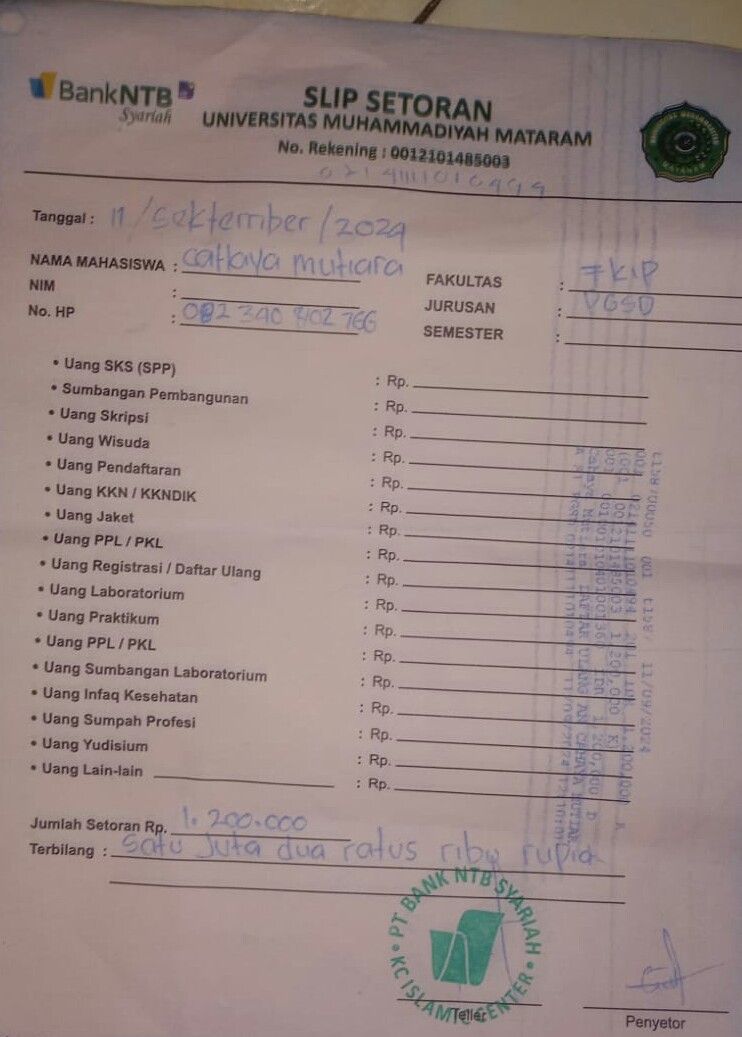 BankNTB
Syariah
SLIP SETORAN
UNIVERSITAS MUHAMMADIYAH MATARAM
No. Rekening : 0012101485003
Tanggal : 11/sektember/2024
NAMA MAHASISWA : Cahaya mutiara
NIM :
No. HP : 082 340 402 766
FAKULTAS : FKIP
JURUSAN : PGSD
SEMESTER :
• Uang SKS (SPP) : Rp.
• Sumbangan Pembangunan : Rp.
• Uang Skripsi : Rp.
• Uang Wisuda : Rp.
• Uang Pendaftaran : Rp.
• Uang KKN / KKNDIK : Rp.
• Uang Jaket : Rp.
• Uang PPL / PKL : Rp.
• Uang Registrasi / Daftar Ulang : Rp.
• Uang Laboratorium : Rp.
• Uang Praktikum : Rp.
• Uang PPL / PKL : Rp.
• Uang Sumbangan Laboratorium : Rp.
• Uang Infaq Kesehatan : Rp.
• Uang Sumpah Profesi : Rp.
• Uang Yudisium : Rp.
• Uang Lain-lain : Rp.
Jumlah Setoran Rp. 1.200.000
Terbilang : Satu Juta dua ratus ribu rupia
PT BANK NTB SYARIAH
KC ISLAMIC CENTER
Teller
Penyetor